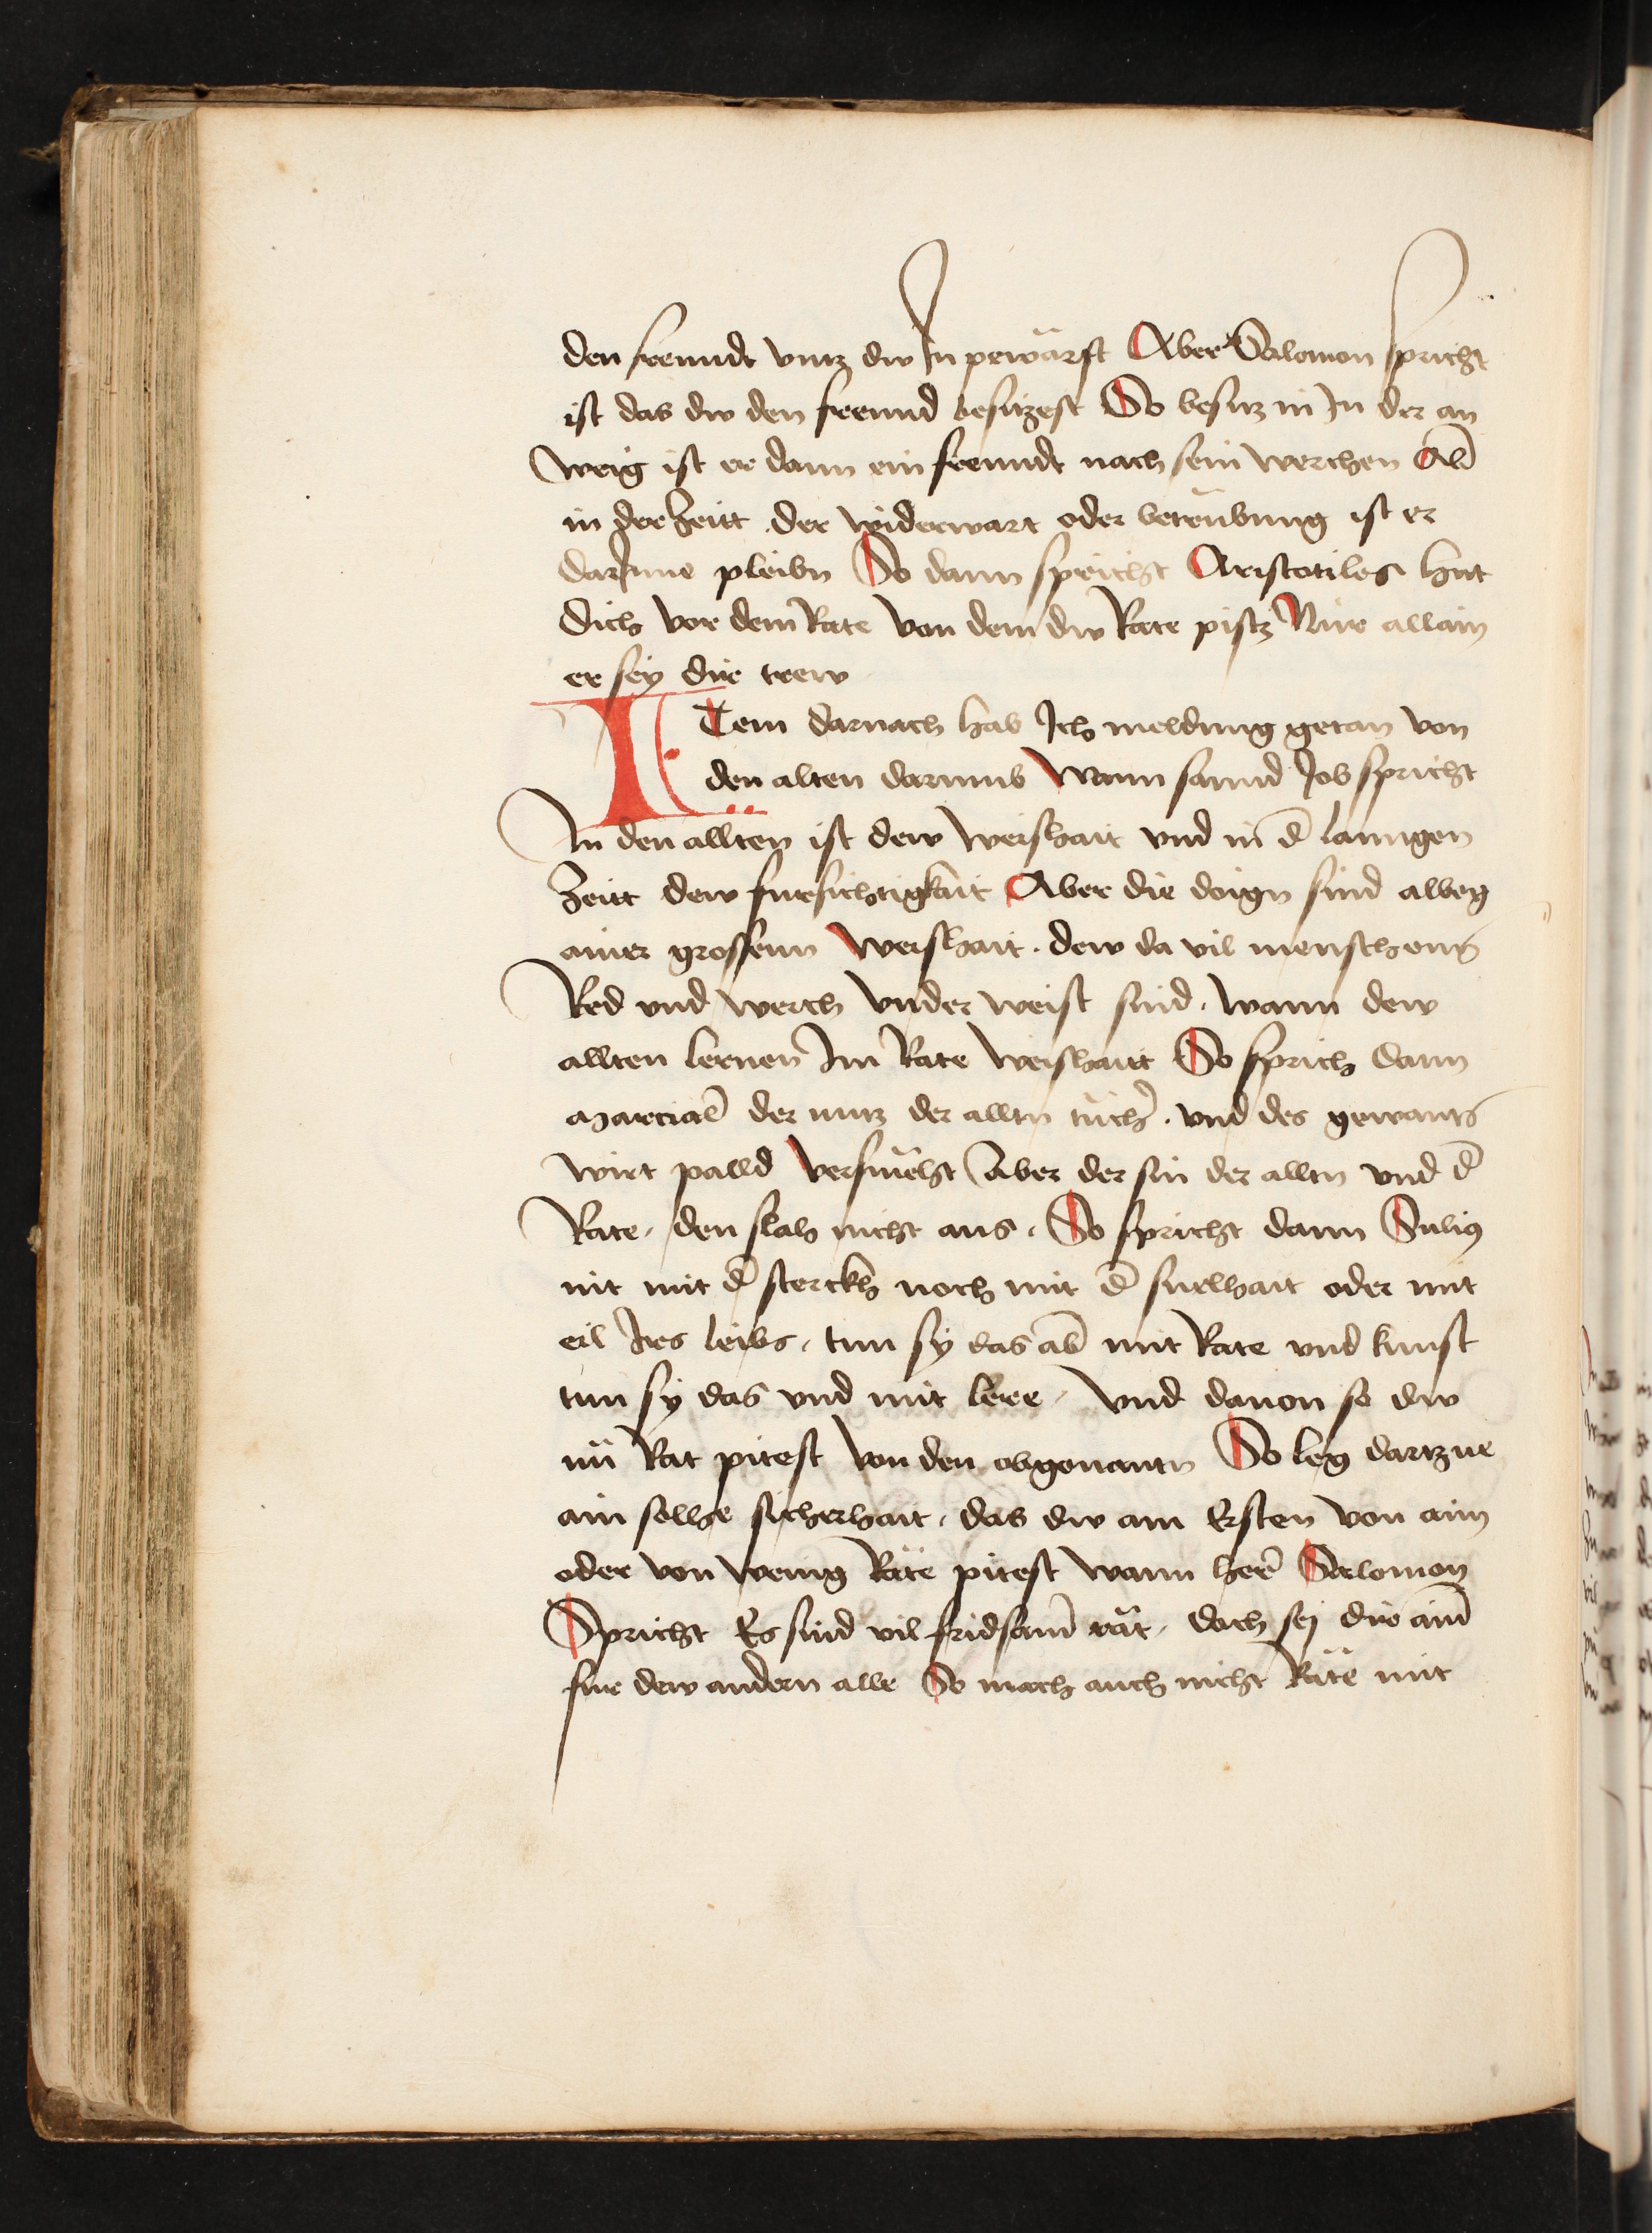 den freundt vntz dw In pewärst Aber Salomon spricht
ist das dw den freund besitzest So besitz in In der an
weig ist er dann ein freundt nach sein werchen Ab̄
in der Zeitt der widerwart oder betrübung ist er
darInne pleibn So dann spricht Aristotiles hüt
dich vor dem Rate von dem dw Rate pistz Nur allain
er sey dir trew
ITem darnach hab Ich meldung getan von
den alten darumb Wann sannd Job spricht
In den allten ist dew weishait vnd in d̄ lanngen
Zeitt dew fursichtigkait Aber die doign sind albeg
ainer grossenn Weishait . dew da vil menschens
Red vnd werch vnder weist sind . wann dew
allten lernen Im Rate weishait So sprich dann
Marcial̄ der nutz der alltn tüch̄ . vnd des gewants
wirt palld versmëht Aber der sin der alltn vnd d̄
Rate , den slah nicht aus . So spricht dann Tulius
nit mit d̄ sterckh noch mit d̄ snelhait oder mit
eil Ires leibs , tun sy das ab̄ mit Rate vnd kunst
tun sy das vnd mit lere , vnd dauon so dw
nü Rat pitest von den obgenantn So leg dartzue
ain solhe sicherhait , das dw am Ersten von aim
oder von wenig Räte pitest wann her̄ Salomon
Spricht Es sind vil fridsam̄ rät , doch sej dir aim̄
fur dew andern alle So mach auch nicht Räte mit